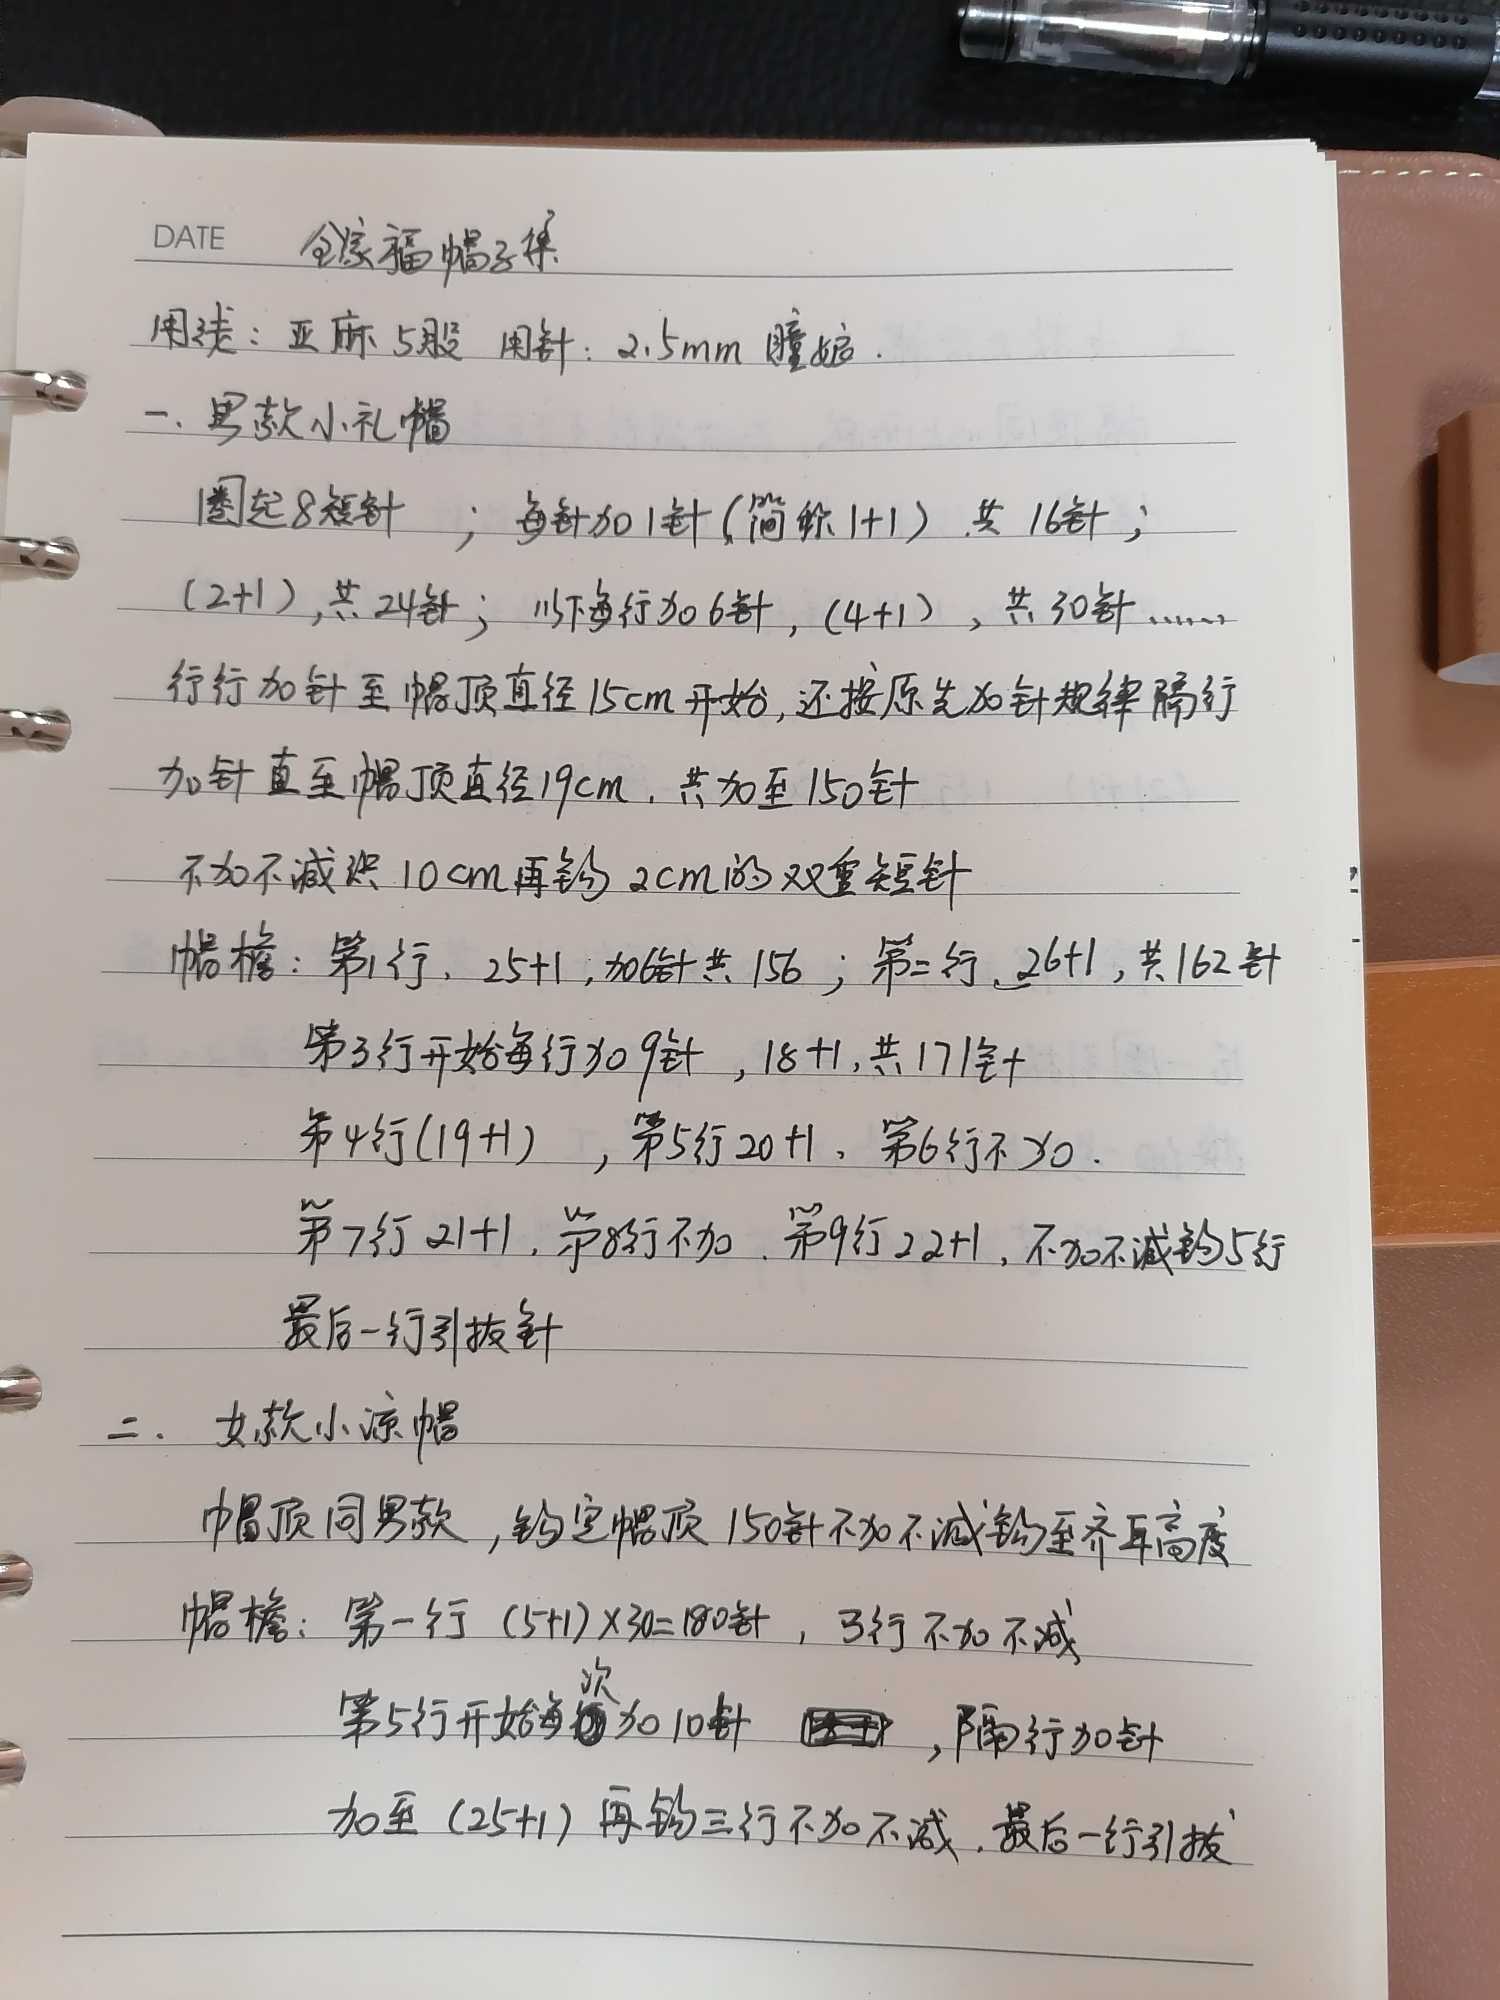 DATE 全家福帽子集
用线：亚麻5股 用针：2.5mm
一、男款小礼帽
圈起8短针；每针加1针(简称1+1)共16针；
(2+1),共24针；以下每行加6针,(4+1),共30针……
行行加针至帽顶直径15cm开始,还按原先加针规律隔行
加针直至帽顶直径19cm.共加至150针
不加不减织10cm再钩2cm的双重短针
帽檐：第1行、25+1,加6针共156；第二行、26+1,共162针
第3行开始每行加9针,18+1,共171针
第4行(19+1),第5行20+1、第6行不加.
第7行21+1、第8行不加、第9行22+1,不加不减钩5行
最后一行引拔针
二、女款小凉帽
帽顶同男款,钩完帽顶150针不加不减钩至齐耳高度
帽檐：第一行(5+1)×30=180针,3行不加不减
第5行开始每次加10针,隔行加针
加至(25+1)再钩三行不加不减.最后一行引拔